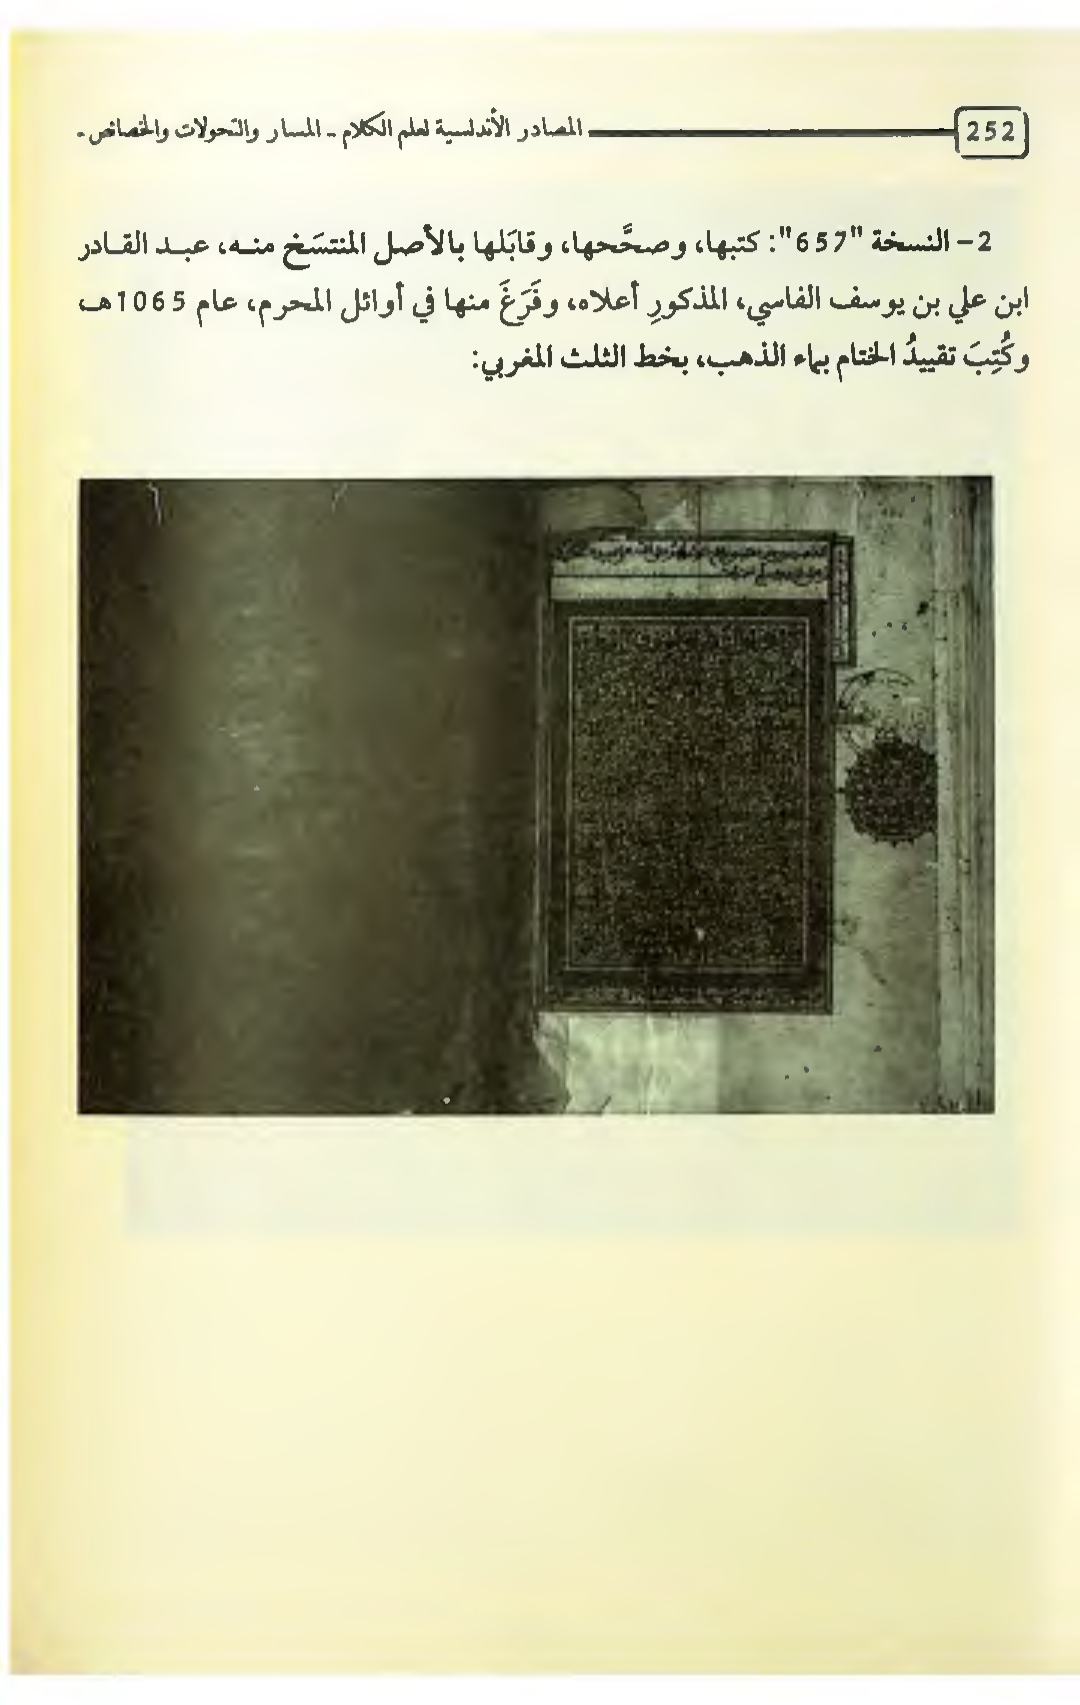 252 المصادر الأندلسية لعلم الكلام - المسار والتحولات والخصائص -
2- النسخة "657": كتبها، وصحَّحها، وقابَلها بالأصل المنتسَخ منه، عبد القادر
ابن علي بن يوسف الفاسي، المذكورِ أعلاه، وفَرَغَ منها في أوائل المحرم، عام 1065هـ
وكُتِبَ تقييدُ الختام بماء الذهب، بخط الثلث المغربي: